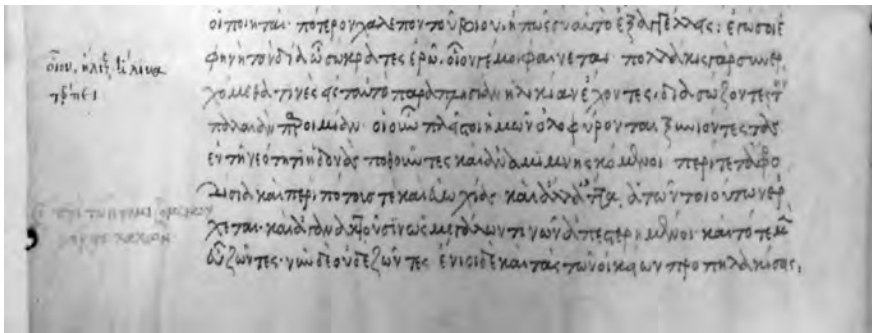 οἱ ποιηταί· πότερον χαλεπὸν τοῦ βίου, ἢ πῶς σὺ αὐτὸ ἐξαγγέλλεις; ἐγώ σοι ἔ
φη νὴ τὸν δία ὦ σώκρατες ἐρῶ, οἷόν γέ μοι φαίνεται· πολλάκις γὰρ συνερ
χόμεθά τινες ἐς ταὐτὸ παραπλησίαν ἡλικίαν ἔχοντες, διασώζοντες τὴν
παλαιὰν παροιμίαν· οἱ οὖν πλεῖστοι ἡμῶν ὀλοφύρονται ξυνιόντες τὰς
ἐν τῇ νεότητι ἡδονὰς ποθοῦντες καὶ ἀναμιμνησκόμενοι περί τε τἀφρο
δίσια καὶ περὶ πότους τε καὶ εὐωχίας καὶ ἄλλα ἄττα, ἃ τῶν τοιούτων ἔ
χεται· καὶ ἀγανακτοῦσιν ὡς μεγάλων τινῶν ἀπεστερημένοι καὶ τότε μὲν
εὖ ζῶντες· νῦν δὲ οὐδὲ ζῶντες· ἔνιοι δὲ καὶ τὰς τῶν οἰκείων προπηλακίσεις,
οἷον, ἧλιξ ἥλικα
τέρπει